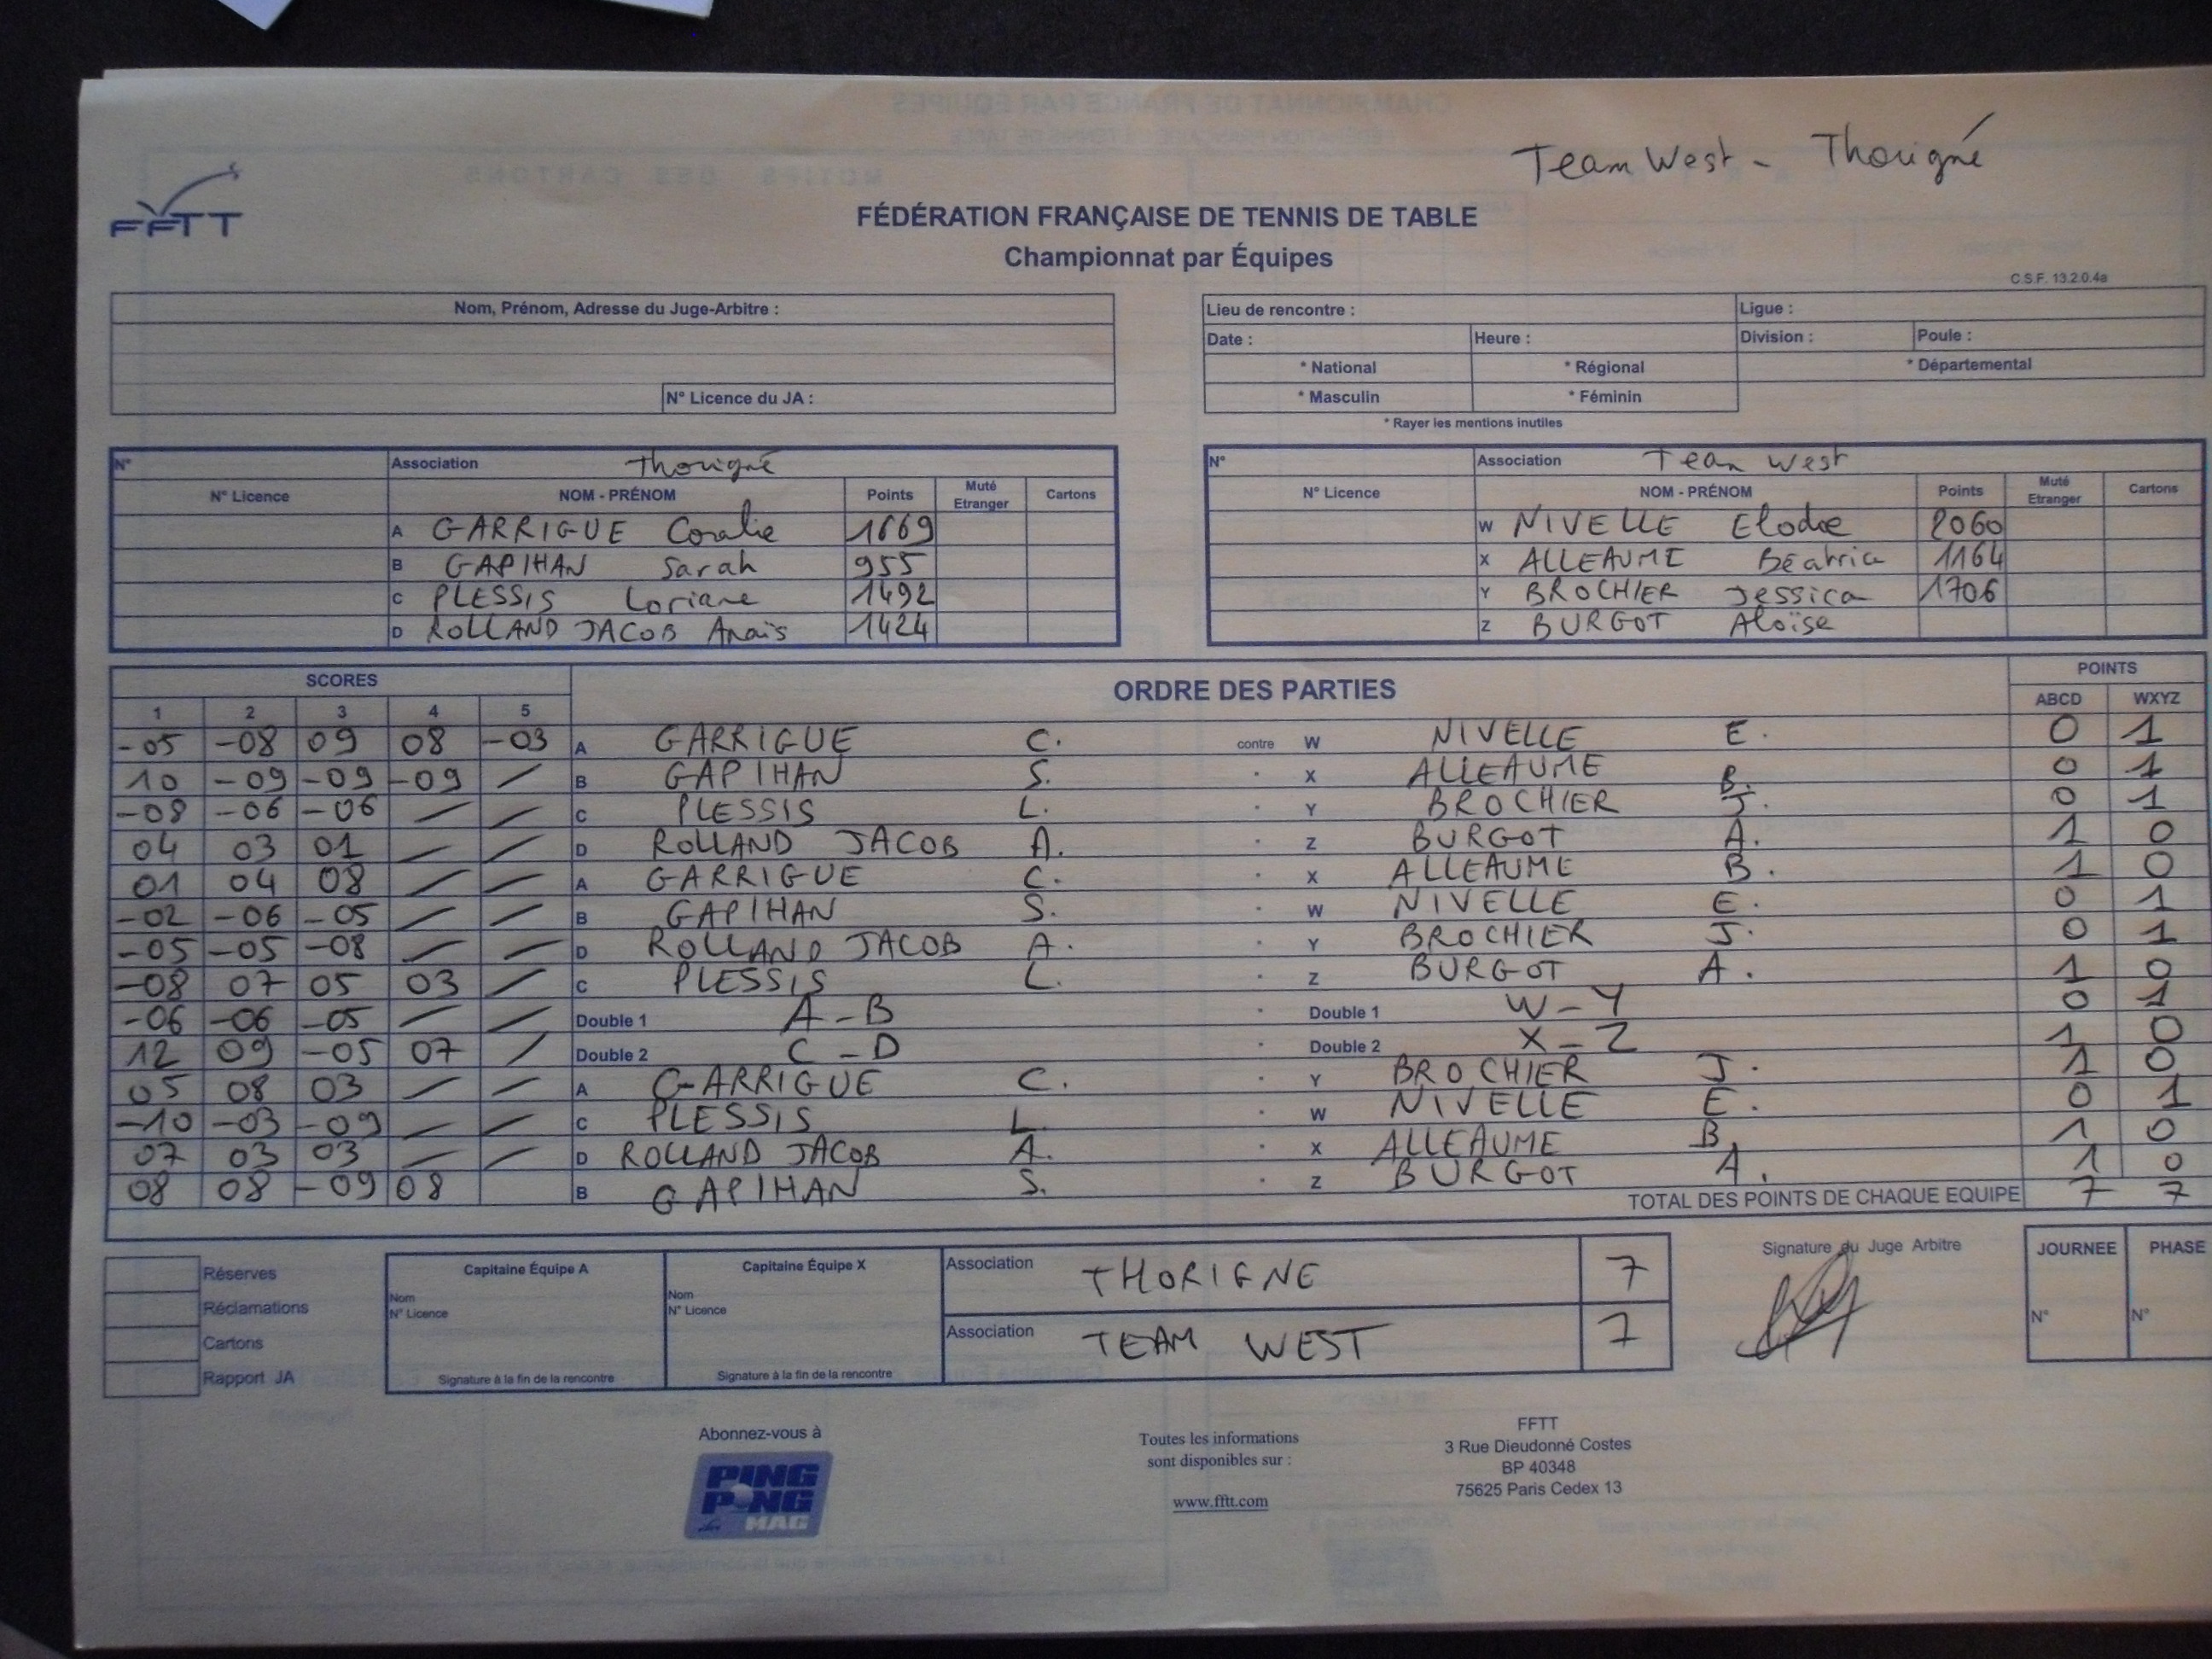 Team West - Thorigné
FFTT
FÉDÉRATION FRANÇAISE DE TENNIS DE TABLE
Championnat par Équipes
C.S.F. 13.2.0.4a
Nom, Prénom, Adresse du Juge-Arbitre :
N° Licence du JA :
Lieu de rencontre : Ligue :
Date : Heure : Division : Poule :
* National * Régional * Départemental
* Masculin * Féminin
* Rayer les mentions inutiles
N° Association Thorigné
N° Licence NOM - PRÉNOM Points Muté Etranger Cartons
A GARRIGUE Coralie 1669
B GAPIHAN Sarah 955
C PLESSIS Loriane 1492
D ROLLAND JACOB Anaïs 1424
N° Association Team West
N° Licence NOM - PRÉNOM Points Muté Etranger Cartons
W NIVELLE Elodie 2060
X ALLEAUME Béatrice 1164
Y BROCHIER Jessica 1706
Z BURGOT Aloïse
SCORES ORDRE DES PARTIES POINTS
1 2 3 4 5 ABCD WXYZ
-05 -08 09 08 -03 A GARRIGUE C. contre W NIVELLE E. 0 1
10 -09 -09 -09 / B GAPIHAN S. " X ALLEAUME B. 0 1
-08 -06 -06 / / C PLESSIS L. " Y BROCHIER J. 0 1
04 03 01 / / D ROLLAND JACOB A. " Z BURGOT A. 1 0
01 04 08 / / A GARRIGUE C. " X ALLEAUME B. 1 0
-02 -06 -05 / / B GAPIHAN S. " W NIVELLE E. 0 1
-05 -05 -08 / / D ROLLAND JACOB A. " Y BROCHIER J. 0 1
-08 07 05 03 / C PLESSIS L. " Z BURGOT A. 1 0
-06 -06 -05 / / Double 1 A - B " Double 1 W - Y 0 1
12 09 -05 07 / Double 2 C - D " Double 2 X - Z 1 0
05 08 03 / / A GARRIGUE C. " Y BROCHIER J. 1 0
-10 -03 -09 / / C PLESSIS L. " W NIVELLE E. 0 1
07 03 03 / / D ROLLAND JACOB A. " X ALLEAUME B. 1 0
08 08 -09 08 B GAPIHAN S. " Z BURGOT A. 1 0
TOTAL DES POINTS DE CHAQUE EQUIPE 7 7
Réserves
Réclamations
Cartons
Rapport JA
Capitaine Équipe A
Nom
N° Licence
Signature à la fin de la rencontre
Capitaine Équipe X
Nom
N° Licence
Signature à la fin de la rencontre
Association THORIGNE 7
Association TEAM WEST 7
Signature du Juge Arbitre
JOURNEE PHASE
N° N°
Abonnez-vous à
PING
PONG
MAG
Toutes les informations
sont disponibles sur :
www.fftt.com
FFTT
3 Rue Dieudonné Costes
BP 40348
75625 Paris Cedex 13